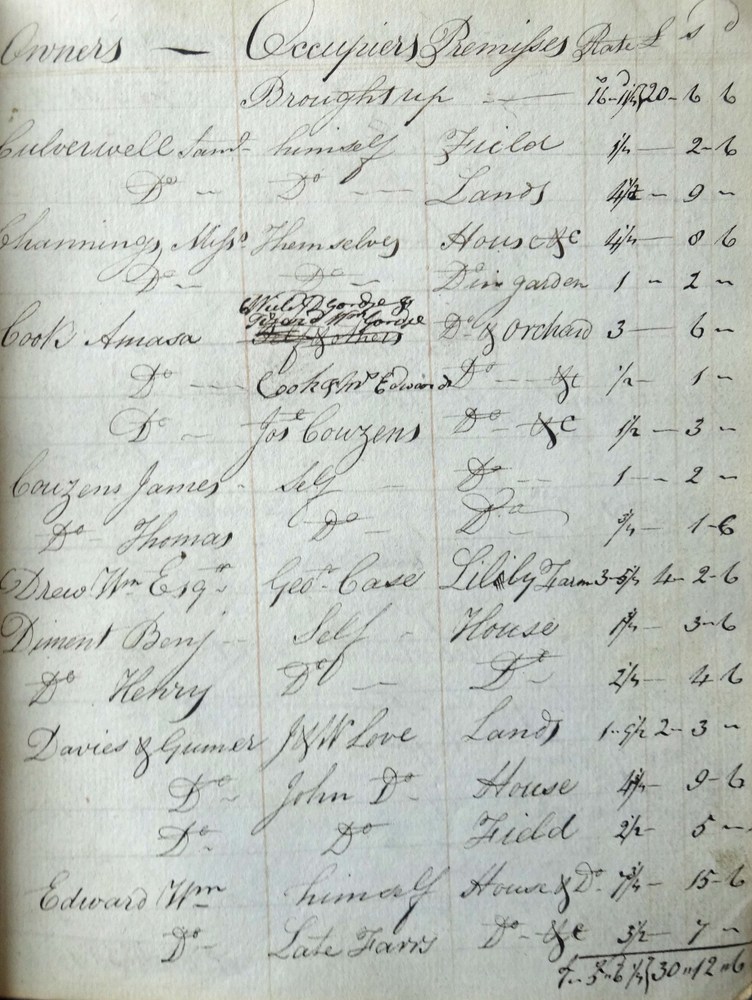 Owners — Occupiers Premisses Rate £ s d
Brought up — 20 - 6 6
Culverwell Saml. himself Field 1¼ — 2 - 6
Do — Do — Lands 4½ — 9 -
Channings Misss. Themselves House &c 4¼ — 8 6
Do — Do — Do in garden 1 - 2 -
Wm Gordge
Cook Amasa Self & others Do & Orchard 3 — 6 -
Do — Cook & Mr Edwards Do — &c ½ — 1 -
Do — Jos Couzens Do — &c 1½ — 3 -
Couzens James - Self - Do — 1 — 2 -
Do Thomas Do — Do ¾ — 1 - 6
Drew Wm Esqr - Geo. Case Farm 4 - 2 - 6
Diment Benj — Self - House 1¾ — 3 - 6
Do Henry Do — Do 2¼ — 4 6
Davies & Gumer J & W Love Lands 2 - 3 -
Do - John Do - House 9 - 6
Do - Do Field 2½ - 5 -
Edward Wm himself House & Do 7¾ — 15 - 6
Do - Late Farrs Do - &c 3½ — 7 -
30 " 12 " 6